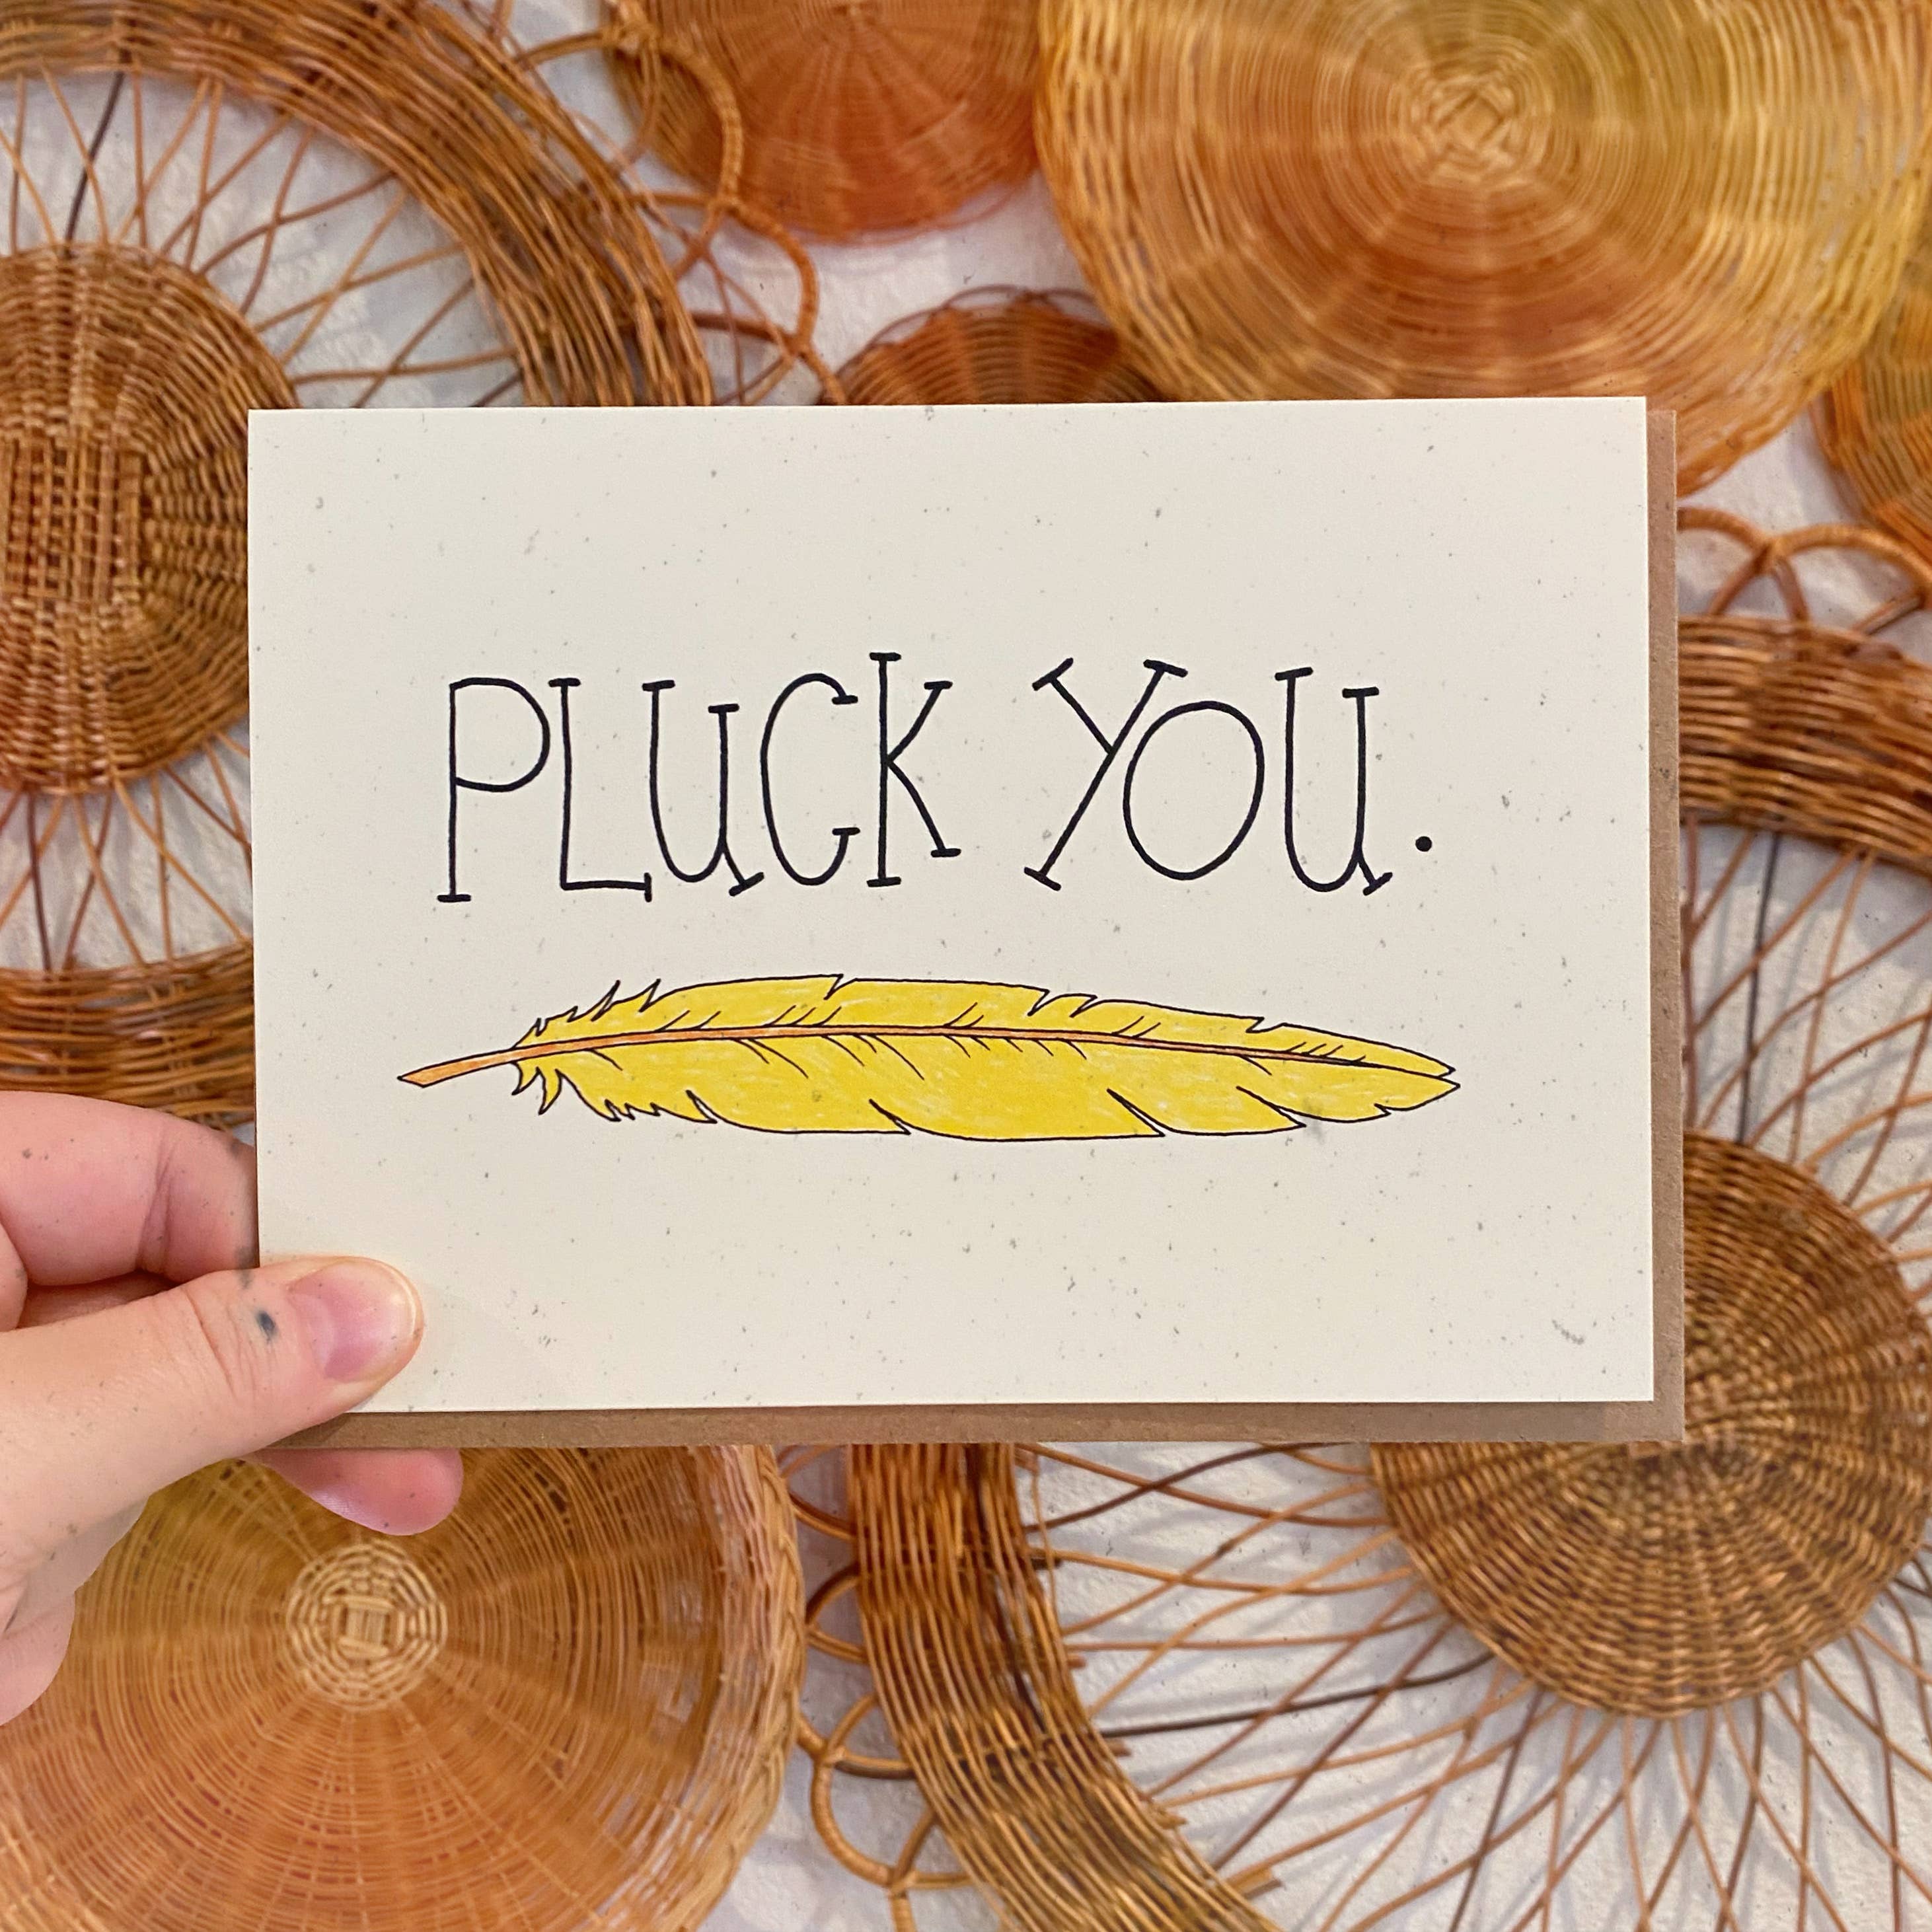 PLUCK YOU.